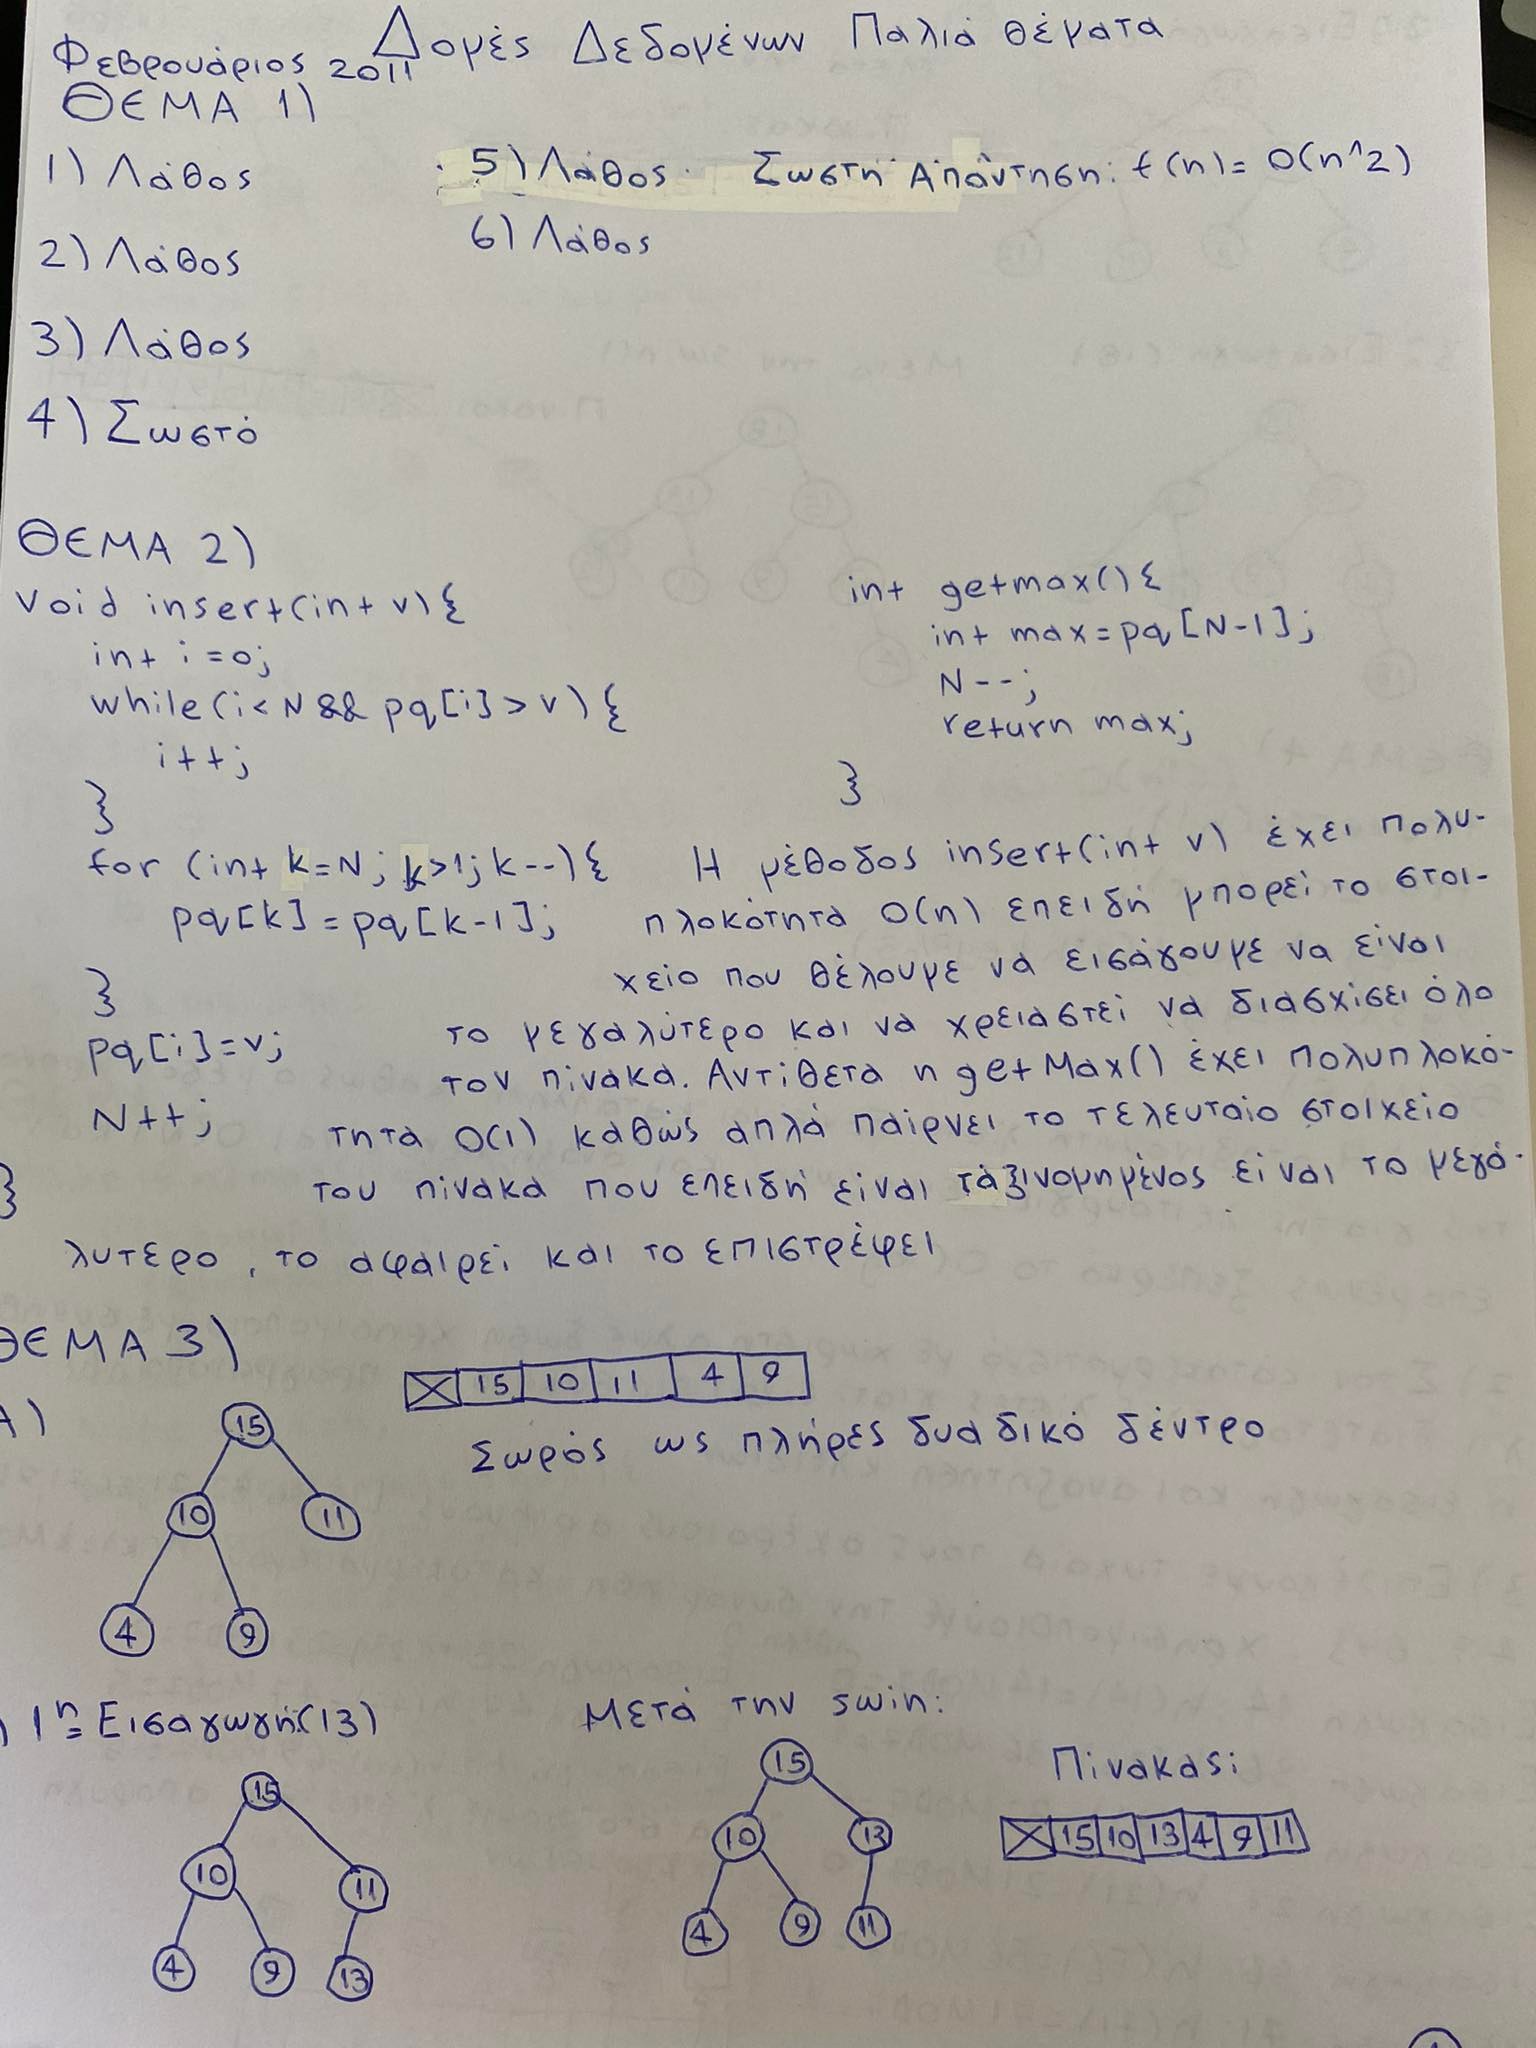 Δομές Δεδομένων Παλιά θέματα
Φεβρουάριος 2011
ΘΕΜΑ 1)
1) Λάθος
2) Λάθος
3) Λάθος
4) Σωστό
5) Λάθος. Σωστή Απάντηση: f(n)= O(n^2)
6) Λάθος
ΘΕΜΑ 2)
void insert(int v){
int i=0;
while(i<N && pq[i]>v){
i++;
}
for (int k=N; k>1; k--){
pq[k]=pq[k-1];
}
pq[i]=v;
N++;
}
int getmax(){
int max=pq[N-1];
N--;
return max;
}
Η μέθοδος insert(int v) έχει πολυ-
πλοκότητα O(n) επειδή μπορεί το στοι-
χείο που θέλουμε να εισάγουμε να είναι
το μεγαλύτερο και να χρειαστεί να διασχίσει όλο
τον πίνακα. Αντίθετα η getMax() έχει πολυπλοκό-
τητα O(1) καθώς απλά παίρνει το τελευταίο στοιχείο
του πίνακα που επειδή είναι ταξινομημένος είναι το μεγά-
λυτερο, το αφαιρεί και το επιστρέφει
ΘΕΜΑ 3)
A)
15
10 11
4 9
15 10 11 4 9
Σωρός ως πλήρες δυαδικό δέντρο
1η Εισαγωγή:(13)
15
10 11
4 9 13
Μετά την swin:
15
10 13
4 9 11
Πίνακας:
15 10 13 4 9 11